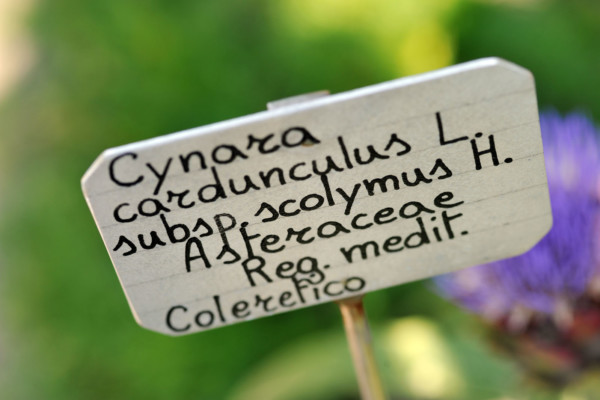 Cynara
cardunculus L.
subsp. scolymus H.
Asteraceae
Reg. medit.
Colerefico